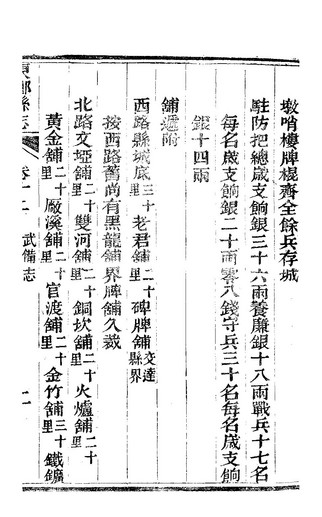 墩哨樓牌棍齊全餘兵存城
駐防把總歲支餉銀三十六兩養廉銀十八兩戰兵十七名
每名歲支餉銀二十兩零八錢守兵三十名每名歲支餉
銀十四兩
舖遞附
西路縣城底三十里老君舖二十里碑牌舖交達縣界
按西路舊尚有黑龍舖界牌舖久裁
北路文埡舖二十里雙河舖二十里銅坎舖二十里火爐舖二十里
黃金舖二十里廠溪舖二十里官渡舖二十里金竹舖三十里鐵鑛
鄉縣志 卷十二 武備志 二